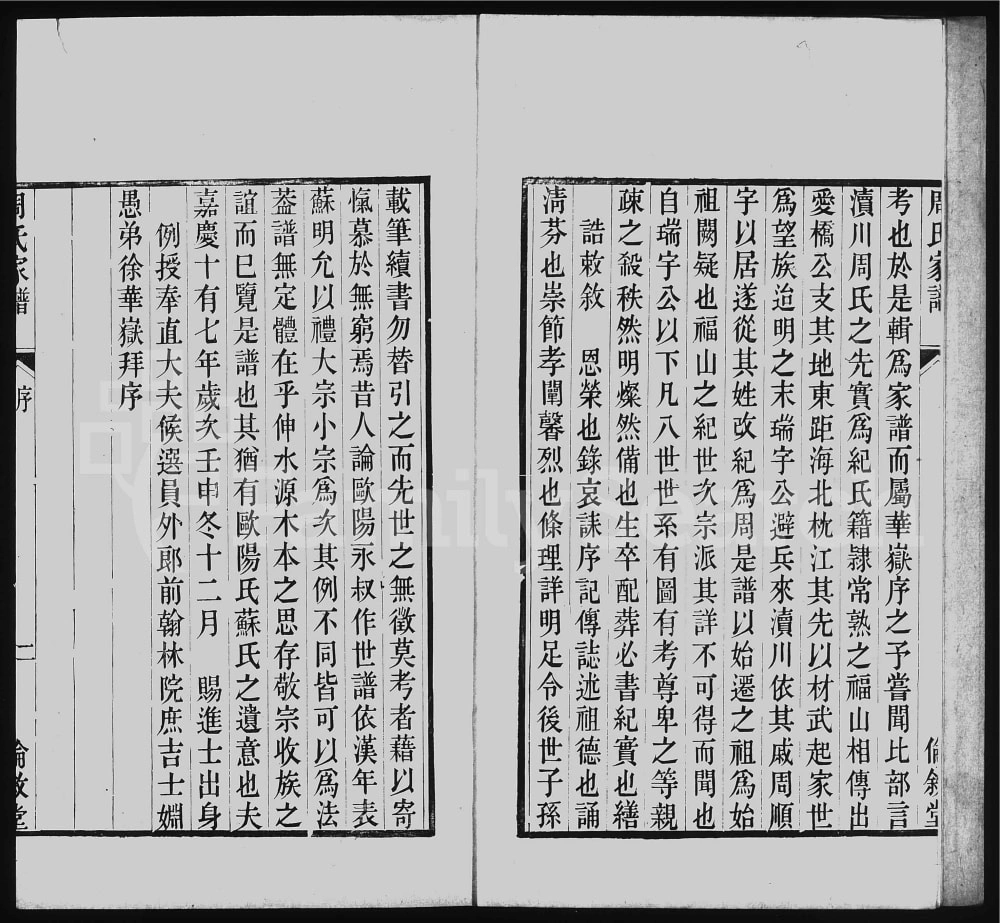 周氏家譜
倫敘堂
考也於是輯爲家譜而屬華嶽序之予嘗聞比部言
瀆川周氏之先實爲紀氏籍隸常熟之福山相傳出
愛橋公支其地東距海北枕江其先以材武起家世
爲望族迨明之末瑞字公避兵來瀆川依其戚周順
字以居遂從其姓改紀爲周是譜以始遷之祖爲始
祖闕疑也福山之紀世次宗派其詳不可得而聞也
自瑞字公以下凡八世世系有圖有考尊卑之等親
疎之殺秩然明燦然備也生卒配葬必書紀實也繕
誥敕敘 恩榮也錄哀誄序記傳誌述祖德也誦
淸芬也崇節孝闡馨烈也條理詳明足令後世子孫
載筆續書勿替引之而先世之無徵莫考者藉以寄
愾慕於無窮焉昔人論歐陽永叔作世譜依漢年表
蘇明允以禮大宗小宗爲次其例不同皆可以爲法
葢譜無定體在乎伸水源木本之思存敬宗收族之
誼而已覽是譜也其猶有歐陽氏蘇氏之遺意也夫
嘉慶十有七年歲次壬申冬十二月 賜進士出身
例授奉直大夫候選員外郎前翰林院庶吉士姻
愚弟徐華嶽拜序
周氏家譜
序
二
倫敘堂
FamilySearch